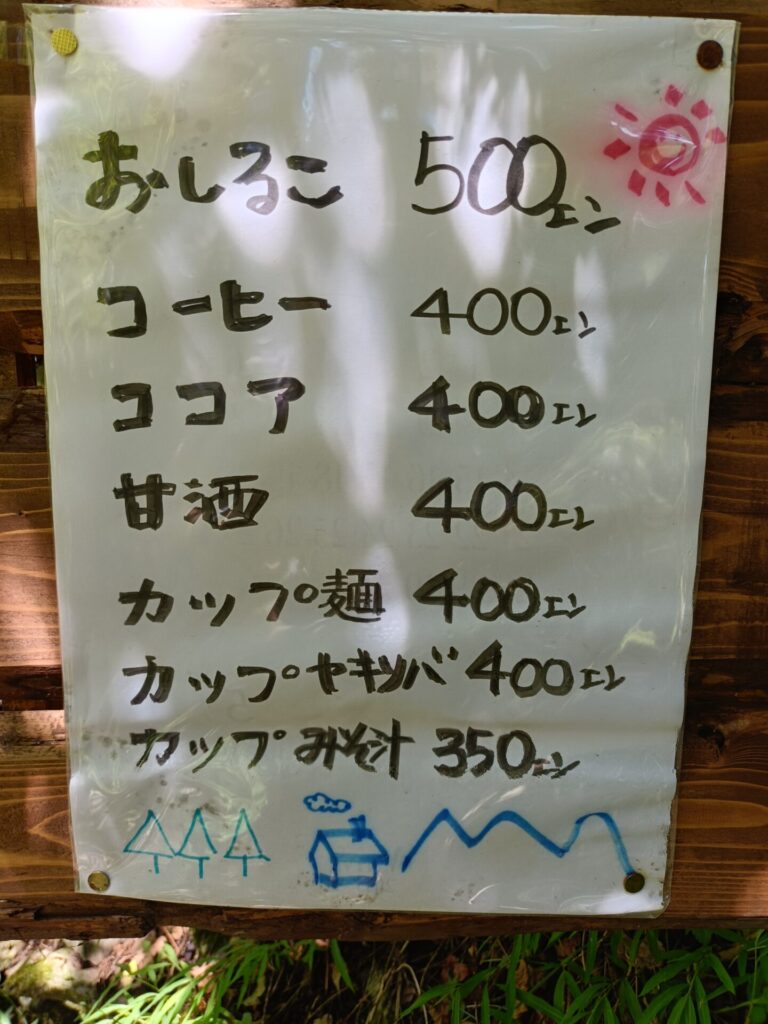 おしるこ 500エン
コーヒー 400エン
ココア 400エン
甘酒 400エン
カップ麺 400エン
カップヤキソバ 400エン
カップみそ汁 350エン